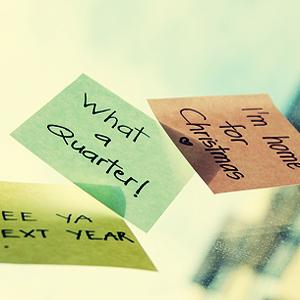 What
a
Quarter!
I'm home
for
Christmas
EE YA
EXT YEAR